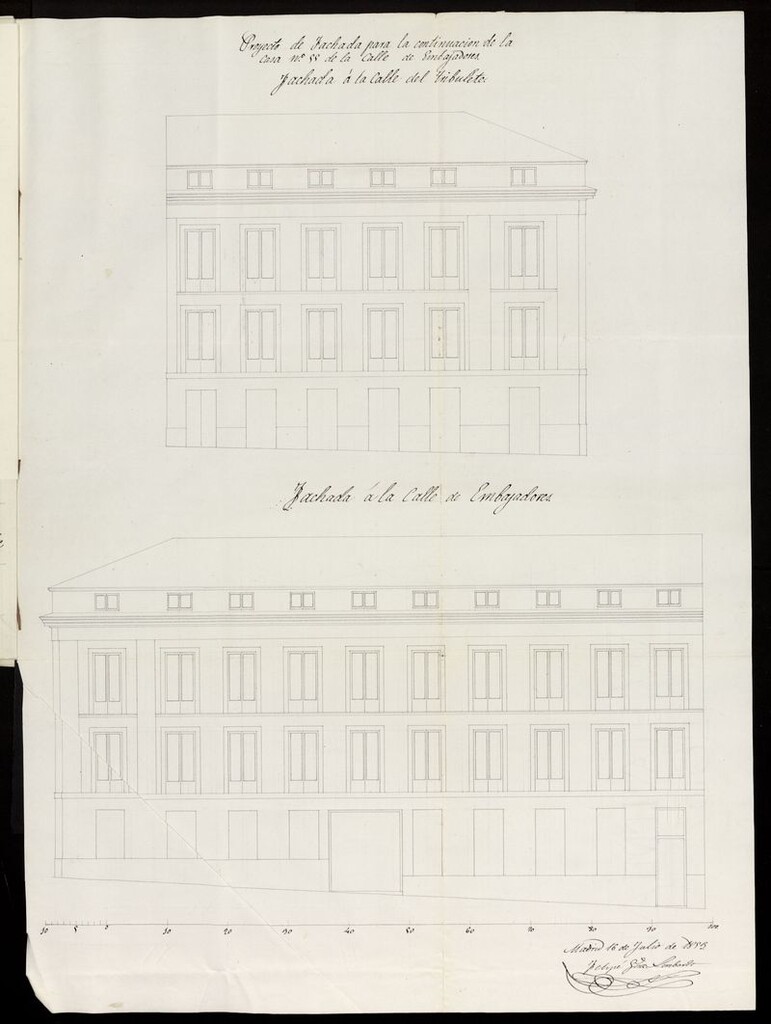 Proyecto de Fachada para la continuacion de la
casa nº 55 de la Calle de Embajadores.
Fachada á la Calle del Tribulete.
Fachada á la Calle de Embajadores
10 5 0 10 20 30 40 50 60 70 80 90 100
Madrid 16 de Julio de
Felipe